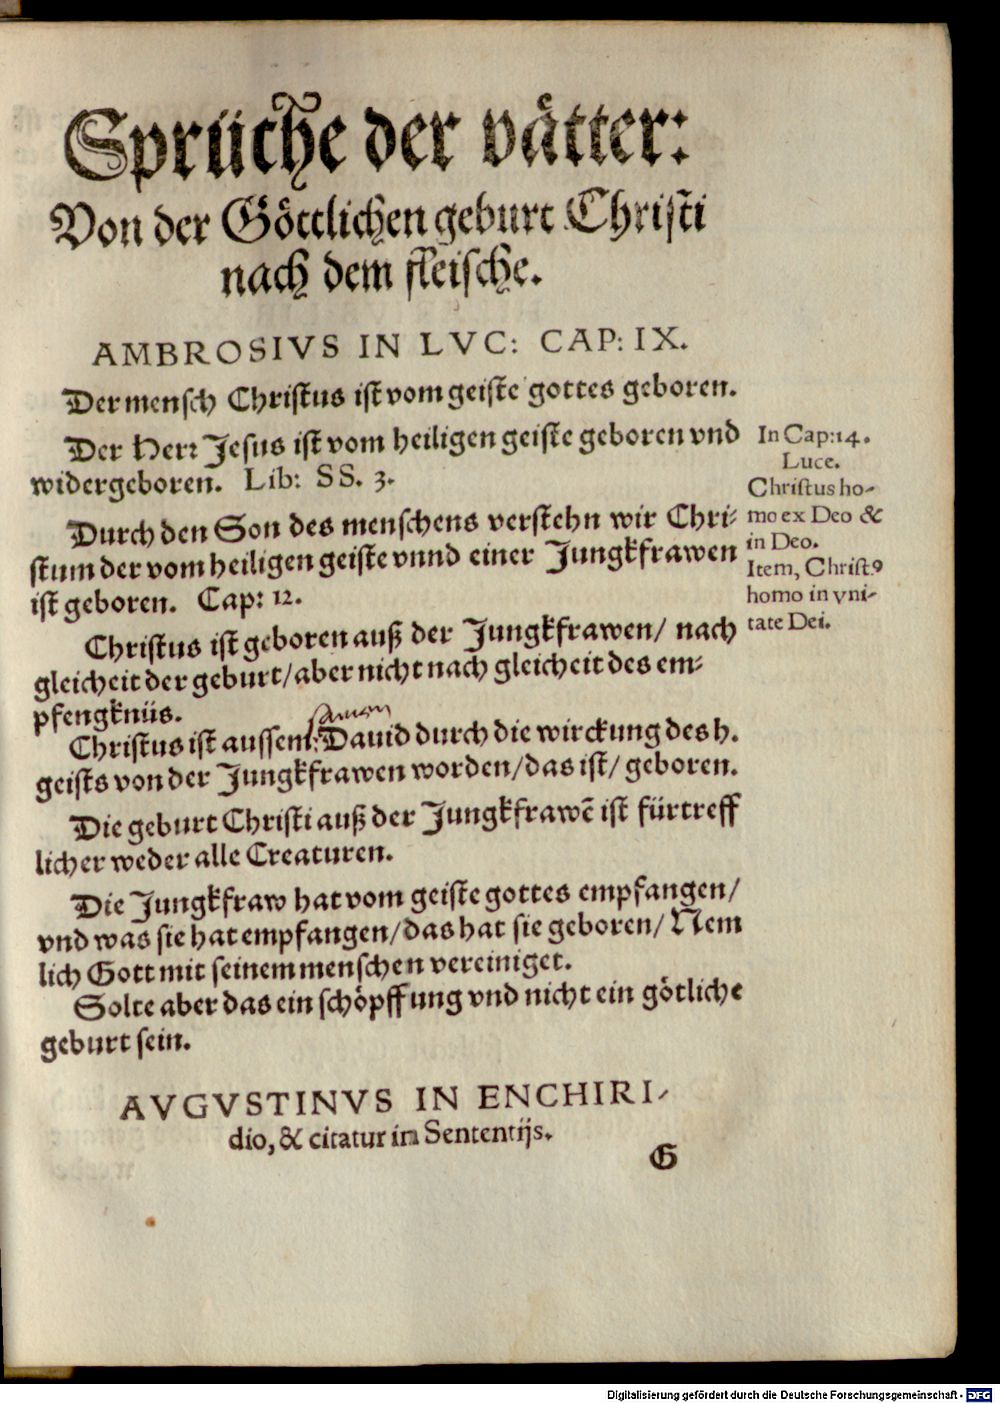 Sprüche der våtter:
Von der Göttlichen geburt Christi
nach dem fleische.
AMBROSIVS IN LVC: CAP: IX.
Der mensch Christus ist vom geiste gottes geboren.
Der Herr Jesus ist vom heiligen geiste geboren vnd
widergeboren. Lib: SS. 3.
In Cap:14.
Luce.
Christus ho-
mo ex Deo &
in Deo.
Item, Christꝰ
homo in vni-
tate Dei.
Durch den Son des menschens verstehn wir Chri-
stum der vom heiligen geiste vnnd einer Jungkfrawen
ist geboren. Cap: 12.
Christus ist geboren auß der Jungkfrawen/ nach
gleicheit der geburt/ aber nicht nach gleicheit des em-
pfengknüs.
samen
Christus ist aussem Dauid durch die wirckung des h.
geists von der Jungkfrawen worden/ das ist/ geboren.
Die geburt Christi auß der Jungkfrawē ist fürtreff
licher weder alle Creaturen.
Die Jungkfraw hat vom geiste gottes empfangen/
vnd was sie hat empfangen/ das hat sie geboren/ Nem
lich Gott mit seinem menschen vereiniget.
Solte aber das ein schöpffung vnd nicht ein götliche
geburt sein.
AVGVSTINVS IN ENCHIRI-
dio, & citatur in Sententijs.
G
Digitalisierung gefördert durch die Deutsche Forschungsgemeinschaft - DFG